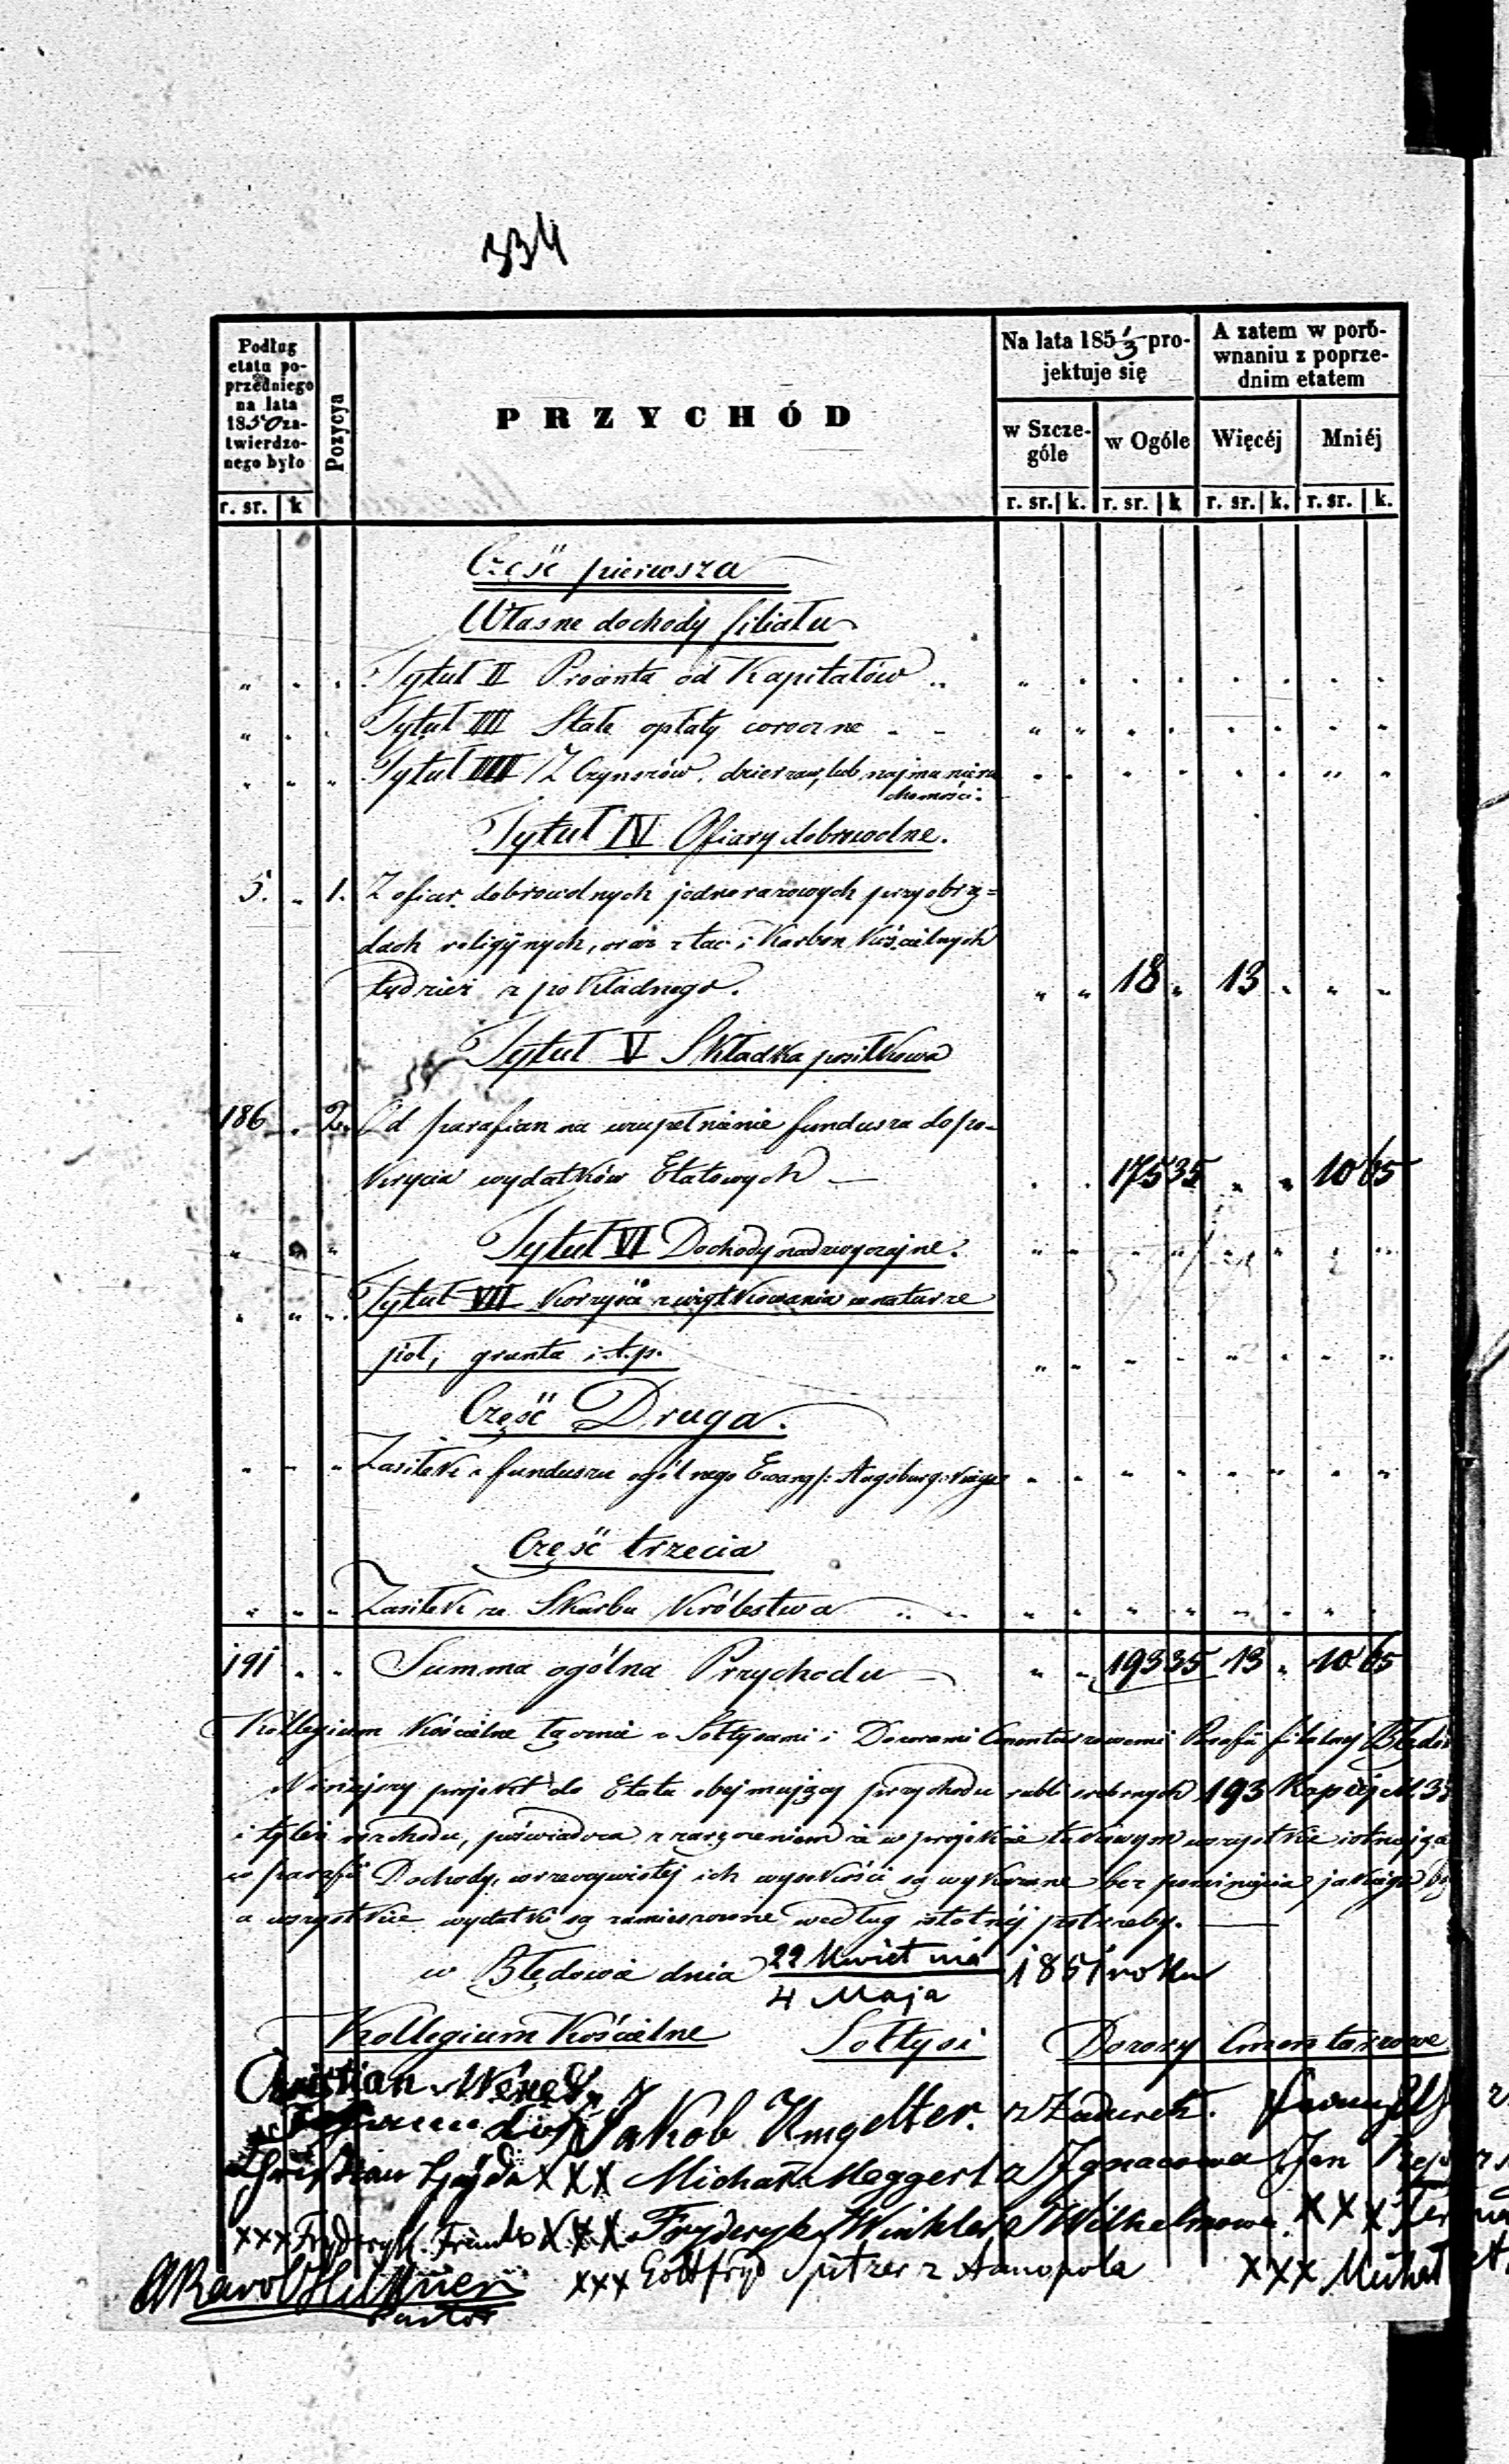 334
Podług etatu poprzedniego na lata 1850 zatwierdzonego było
Pozycya
PRZYCHÓD
Na lata 185 1/3 projektuje się
A zatem w porównaniu z poprzednim etatem
w Szczególe w Ogóle Więcéj Mniéj
r. sr. k r. sr. k. r. sr. k r. sr. k. r. sr. k.
Część pierwsza
Własne dochody filiału
Tytuł II Procenta od Kapitałów
Tytuł III Stałe opłaty coroczne
Tytuł IIII Z Czynszów, dzierzaw, lub najmu nieru
chomości.
Tytuł IV Ofiary dobrowolne.
5. " 1. Z ofiar dobrowolnych jednorazowych przy obrzę=
dach religijnych, oraz z tac i Karbon Kościelnych
tudzież z pokładnego. " " 18 " 13 " " "
Tytuł V Składka posiłkowa
186 " 2. Od parafian na uzupełnienie funduszu do po-
krycia wydatków Etatowych — 175 35 " " 10 65
Tytuł VI Dochody nadzwyczajne.
Tytuł VII Korzyści z użytkowania w naturze
pól, grunta i.t.p.
Część Druga.
Zasiłek z funduszu ogólnego Ewang: Augsburg:
Część trzecia
Zasiłek ze Skarbu Królestwa
191 " " Summa ogólna Przychodu — " " 193 35 13 " 10 65
Kollegium Kościelne łącznie z Sołtysami i Dozorami Cmentarzowemi Parafii filialnej
Niniejszy projekt do Etatu obejmujący przychodu rubli srebrnych 193 Kopiejek 35
i tyleż rozchodu, poświadcza z zaręczeniem że w projekcie takowym wszystkie istniejące
w parafii Dochody, w rzeczywistej ich wysokości są wykazane bez pominięcia jakiego
a wszystkie wydatki są zamieszczone według istotnéj potrzeby. —
w Błędowie dnia 22 Kwietnia / 4 Maja 1851 roku
Kollegium Kościelne Sołtysi Dozory Cmentarzowe
Christian
Jakob Umgelter.
XXX Michał Meggert z Ignacowa Jan
XXX Fryderyk XXX Fryderyk Winkler z Wilhelmowa. XXX
XXX Gottfryd Spitzer z Annopola XXX Michał
Karol
Pastor